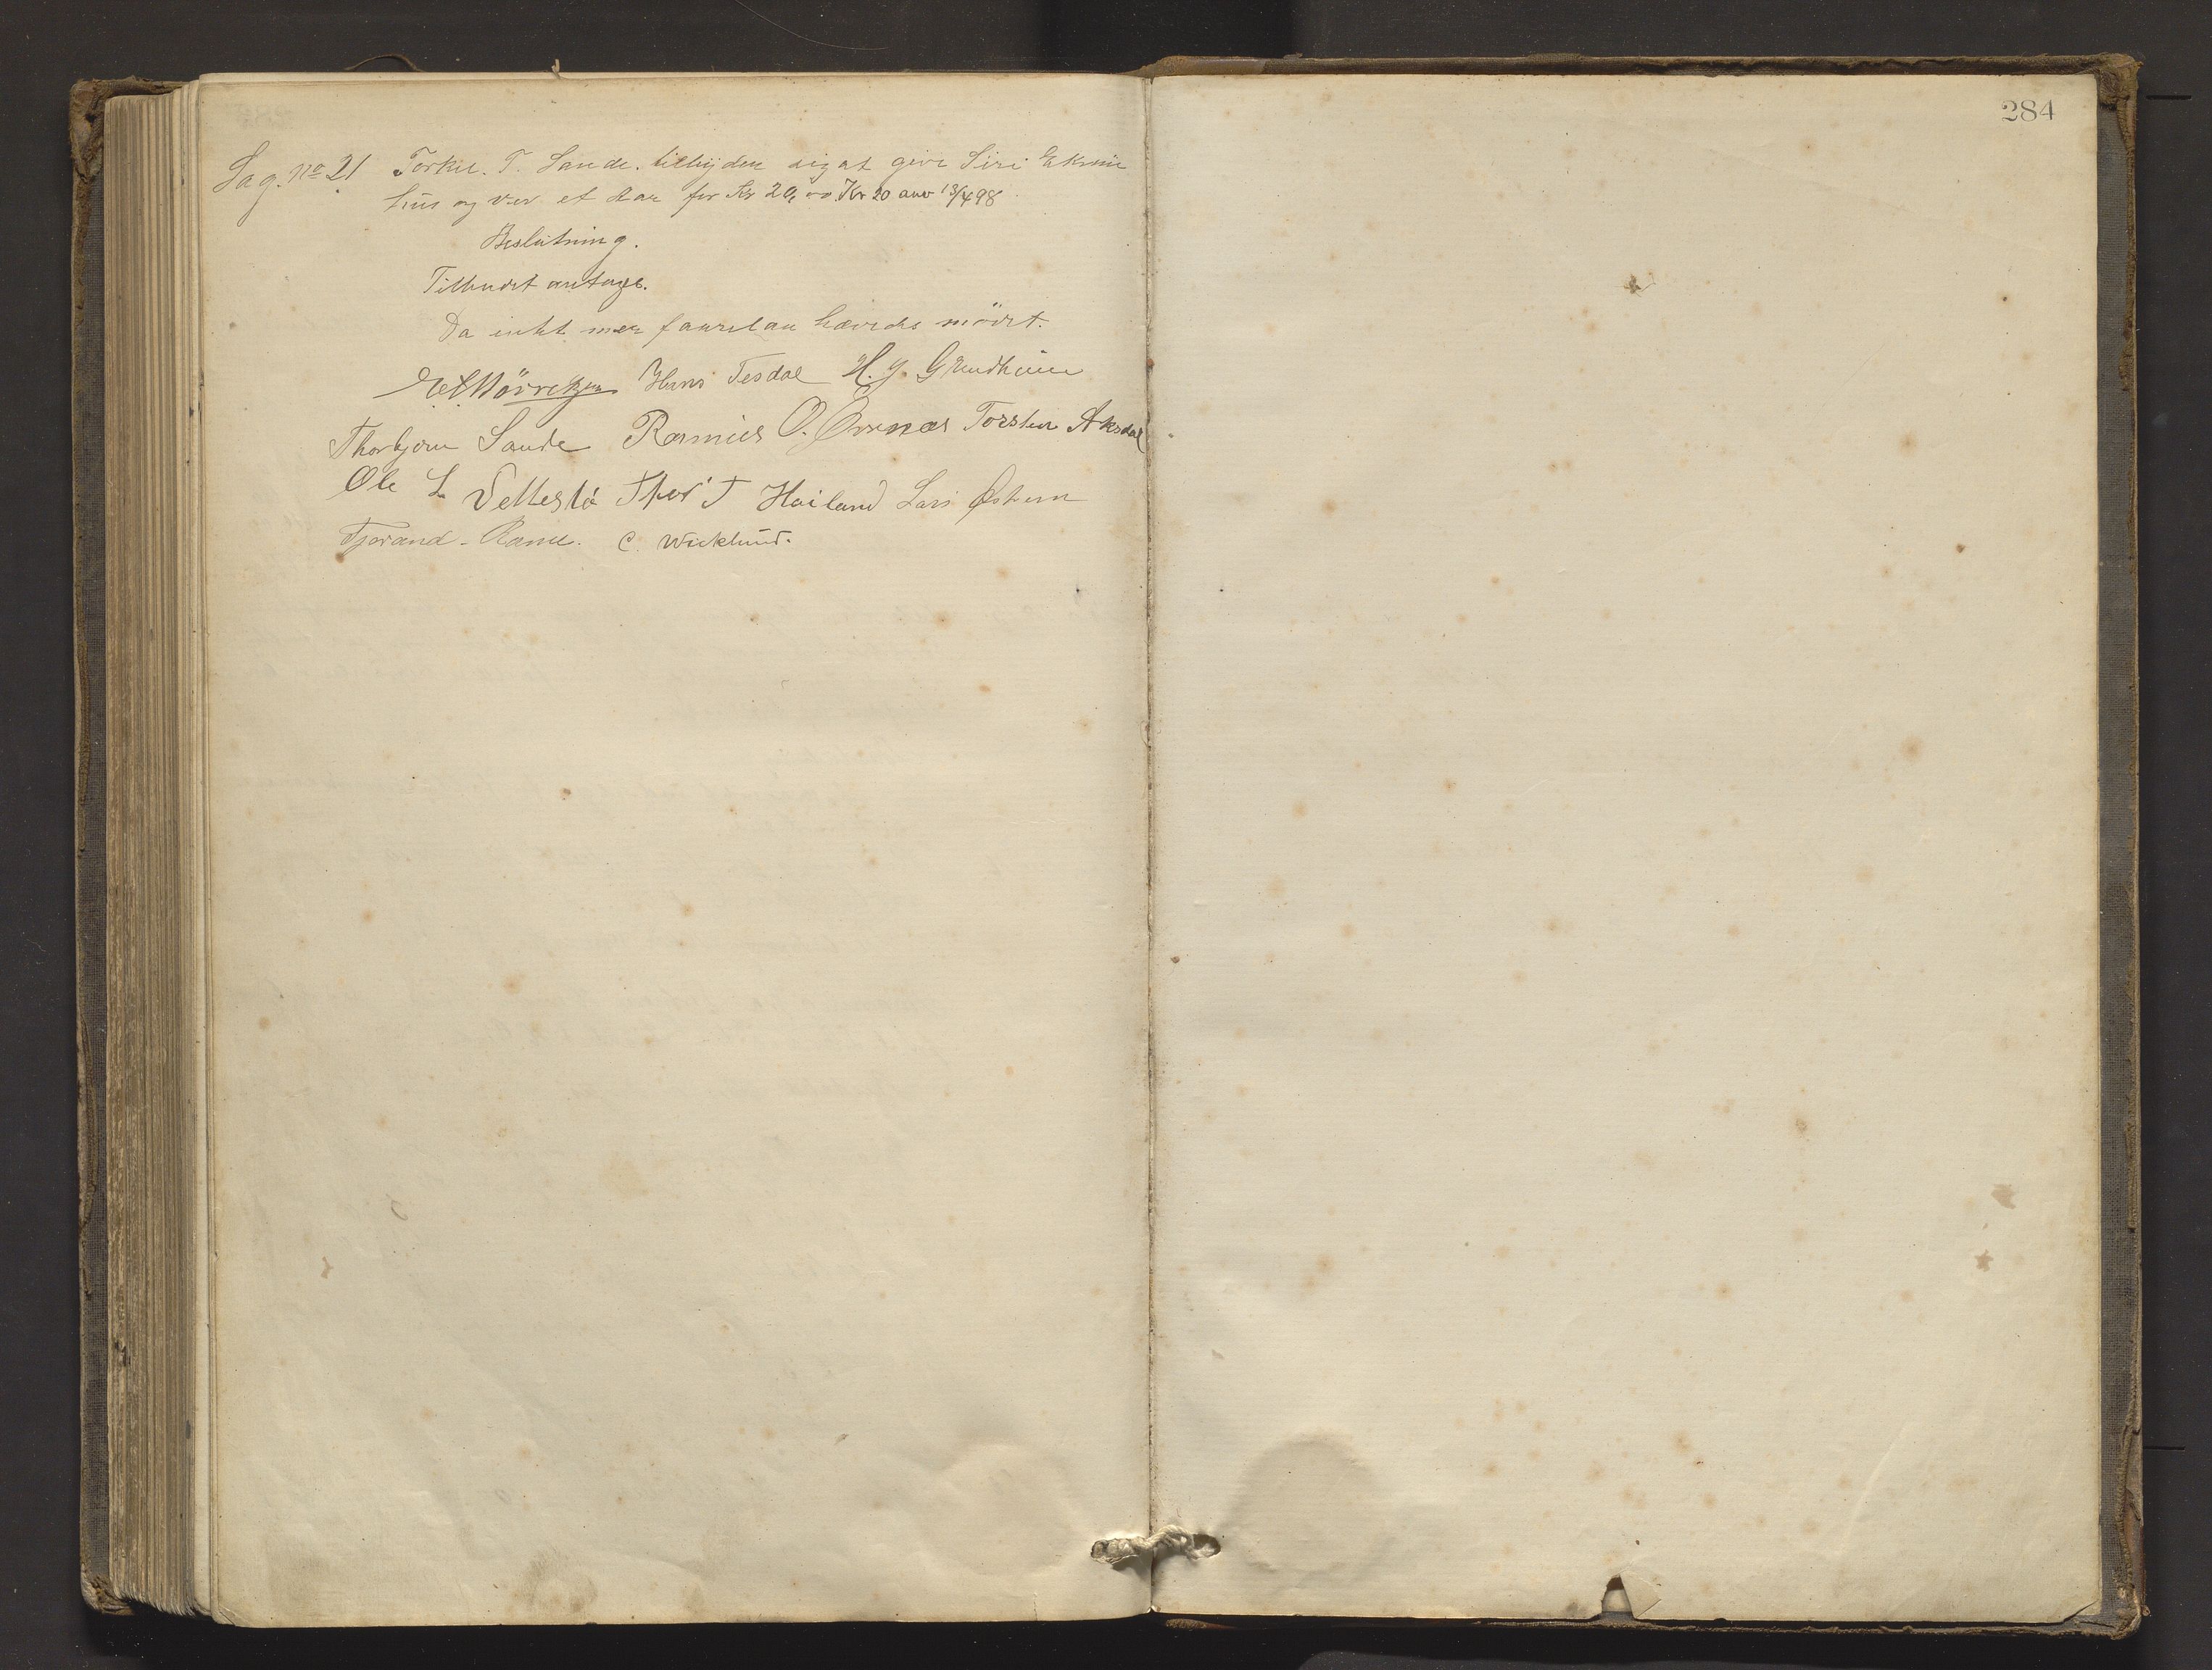 284
Sag. No 21 Torkel. T. Sande. tilbyder sig at give Siri
hus og ver et Aar for Kr 20, oo. Kr 20 anv 13/4 98
Beslutning.
Tilbudet antages.
Da inkt mer faurelau hævedes mödet.
Hans Tesdal H. J. Grindheim
Thorbjörn Sande Rasmus O. Örenæs Torsten Aksdal
Ole L Vettestö Thor T Hailand Lars Østrem
Tjerand Ramel. C. Wicklund.